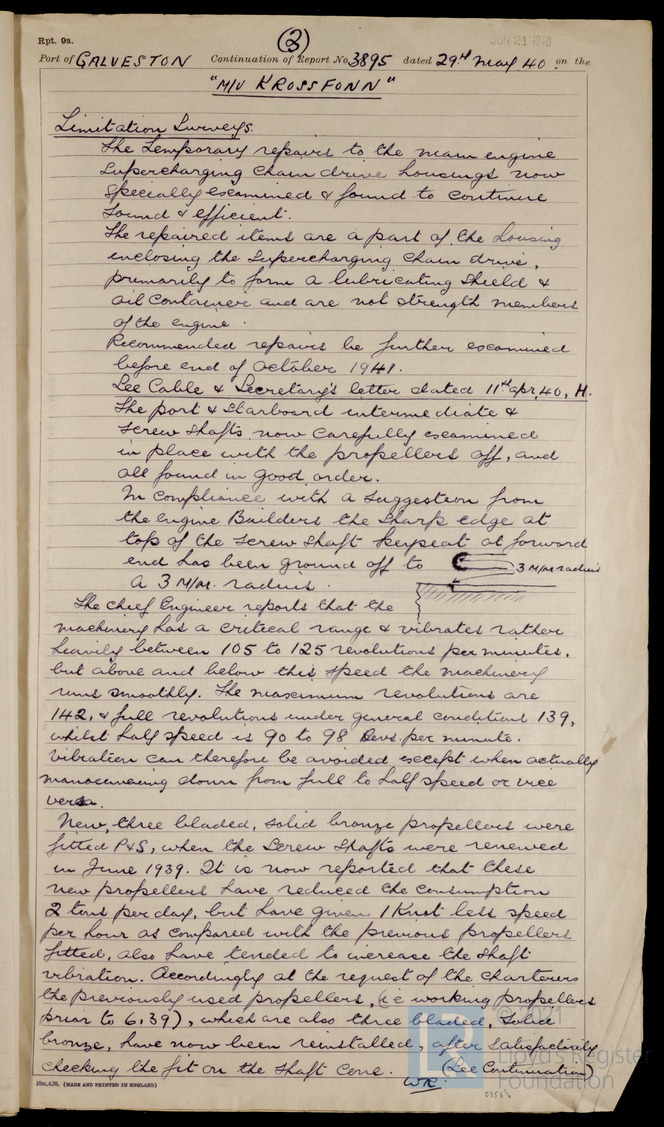 (3)
JUN 21 1940
Rpt. 9a.
Port of GALVESTON Continuation of Report No. 3895 dated 29th May 40. on the
"M/V KROSSFONN"
Limitation Surveys.
The Temporary repairs to the main engine
Supercharging Chain drive housings now
specially examined & found to continue
sound & efficient.
The repaired items are a part of the housing
enclosing the Supercharging Chain drive,
primarily to form a lubricating shield &
oil container and are not strength members
of the engine.
Recommended repairs be further examined
before end of October 1941.
See Cable & Secretary's letter dated 11th Apr, 40, H.
The port & Starboard intermediate &
screw shafts now carefully examined
in place with the propellers off, and
all found in good order.
In compliance with a suggestion from
the Engine Builders the sharp edge at
top of the screw shaft keyseat at forward
end has been ground off to
3 M/m radius
a 3 M/m. radius.
The Chief Engineer reports that the
machinery has a critical range & vibrates rather
heavily between 105 to 125 revolutions per minutes,
but above and below this speed the machinery
runs smoothly. The maximum revolutions are
142, & full revolutions under general conditions 139,
whilst half speed is 90 to 98 Revs. per minute.
Vibration can therefore be avoided except when actually
manoeuvering down from full to half speed or vice
versa.
New, three bladed, solid bronze propellers were
fitted P&S, when the Screw Shafts were renewed
in June 1939. It is now reported that these
new propellers have reduced the consumption
2 tons per day, but have given 1 Knot less speed
per hour as compared with the previous propellers
fitted, also have tended to increase the shaft
vibration. Accordingly at the request of the Charterers
the previously used propellers, (i.e working propellers
prior to 6,39), which are also three bladed, solid
bronze, have now been reinstalled, after satisfactorily
checking the fit on the shaft cone. (See Continuation)
WR.
10m,4,39, (MADE AND PRINTED IN ENGLAND)
© 2021
Lloyd's Register
Foundation